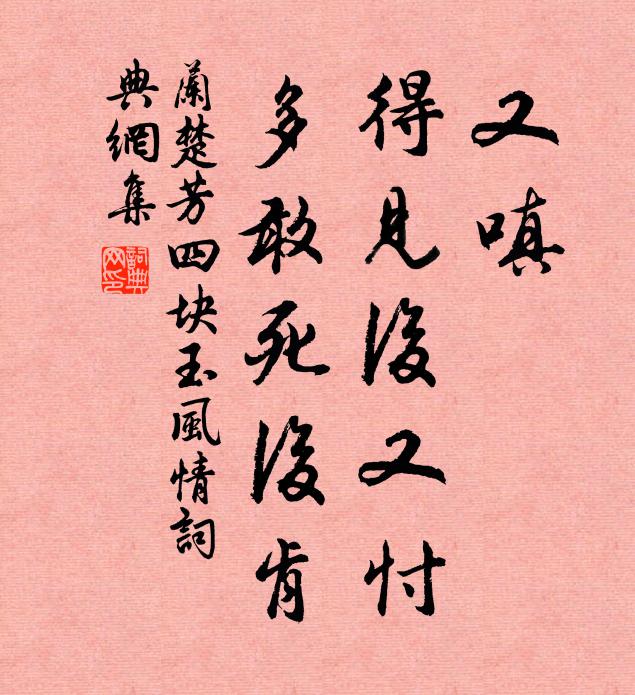 又嗔
得見後又忖
多敢死後肯
蘭楚芳四块玉風情詞
典網集
詞典網印